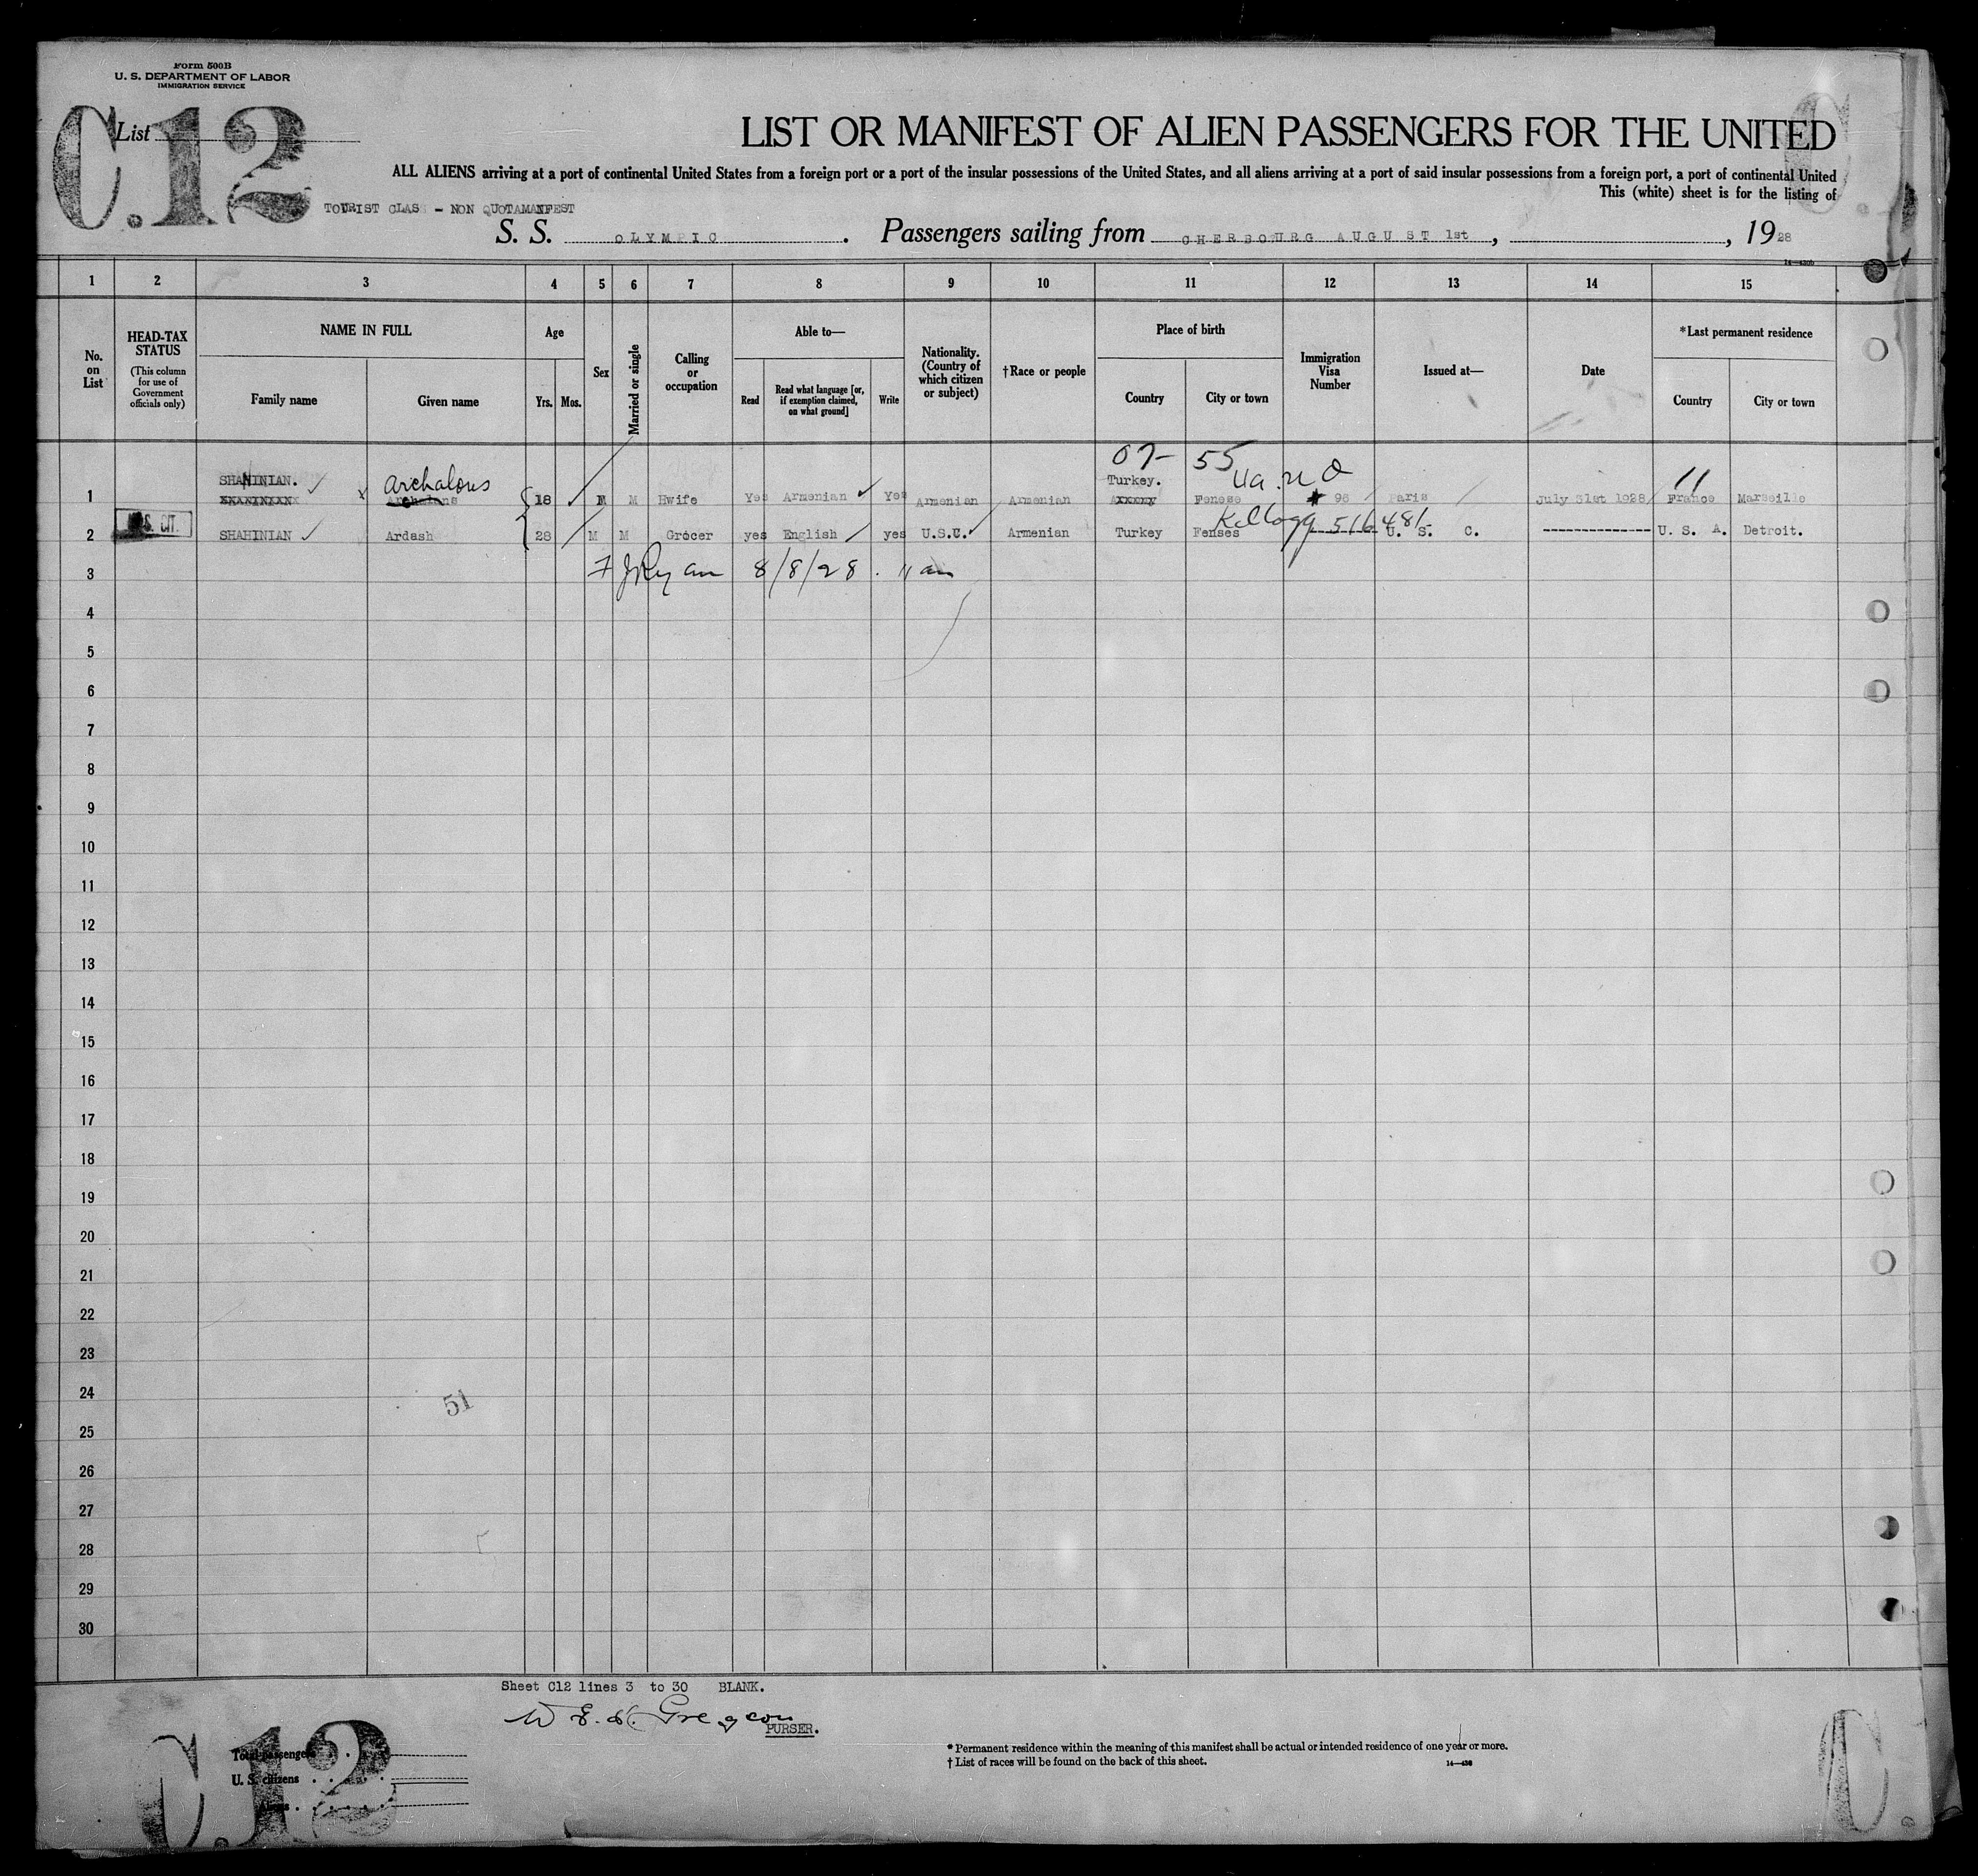 Form 500B
U. S. DEPARTMENT OF LABOR
IMMIGRATION SERVICE
C.12
List
LIST OR MANIFEST OF ALIEN PASSENGERS FOR THE UNITED
ALL ALIENS arriving at a port of continental United States from a foreign port or a port of the insular possessions of the United States, and all aliens arriving at a port of said insular possessions from a foreign port, a port of continental United
This (white) sheet is for the listing of
TOURIST CLASS - NON QUOTA MANIFEST
S. S. OLYMPIC. Passengers sailing from CHERBOURG AUGUST 1st, , 1928
1 2 3 4 5 6 7 8 9 10 11 12 13 14 15
No. on List
HEAD-TAX STATUS (This column for use of Government officials only)
NAME IN FULL
Family name Given name
Age
Yrs. Mos.
Sex
Married or single
Calling or occupation
Able to—
Read Read what language [or, if exemption claimed, on what ground] Write
Nationality. (Country of which citizen or subject)
†Race or people
Place of birth
Country City or town
Immigration Visa Number
Issued at—
Date
*Last permanent residence
Country City or town
07- 55 11
1 SHAHINIAN. Archalous 18 F M Hwife Yes Armenian Yes Armenian Armenian Turkey. Fenese 98 Paris July 31st 1928 France Marseille
Kellogg 516481
2 U.S. CIT. SHAHINIAN Ardash 28 M M Grocer yes English yes U.S.C. Armenian Turkey Fenses U. S. C. ------------- U. S. A. Detroit.
3 F J Ryan 8/8/28. 11 am
4
5
6
7
8
9
10
11
12
13
14
15
16
17
18
19
20
21
22
23
24
51
25
26
27
28
29
30
Sheet C12 lines 3 to 30 BLANK.
PURSER.
C.12
Total passengers
U. S. citizens
Aliens
* Permanent residence within the meaning of this manifest shall be actual or intended residence of one year or more.
† List of races will be found on the back of this sheet.
14—430